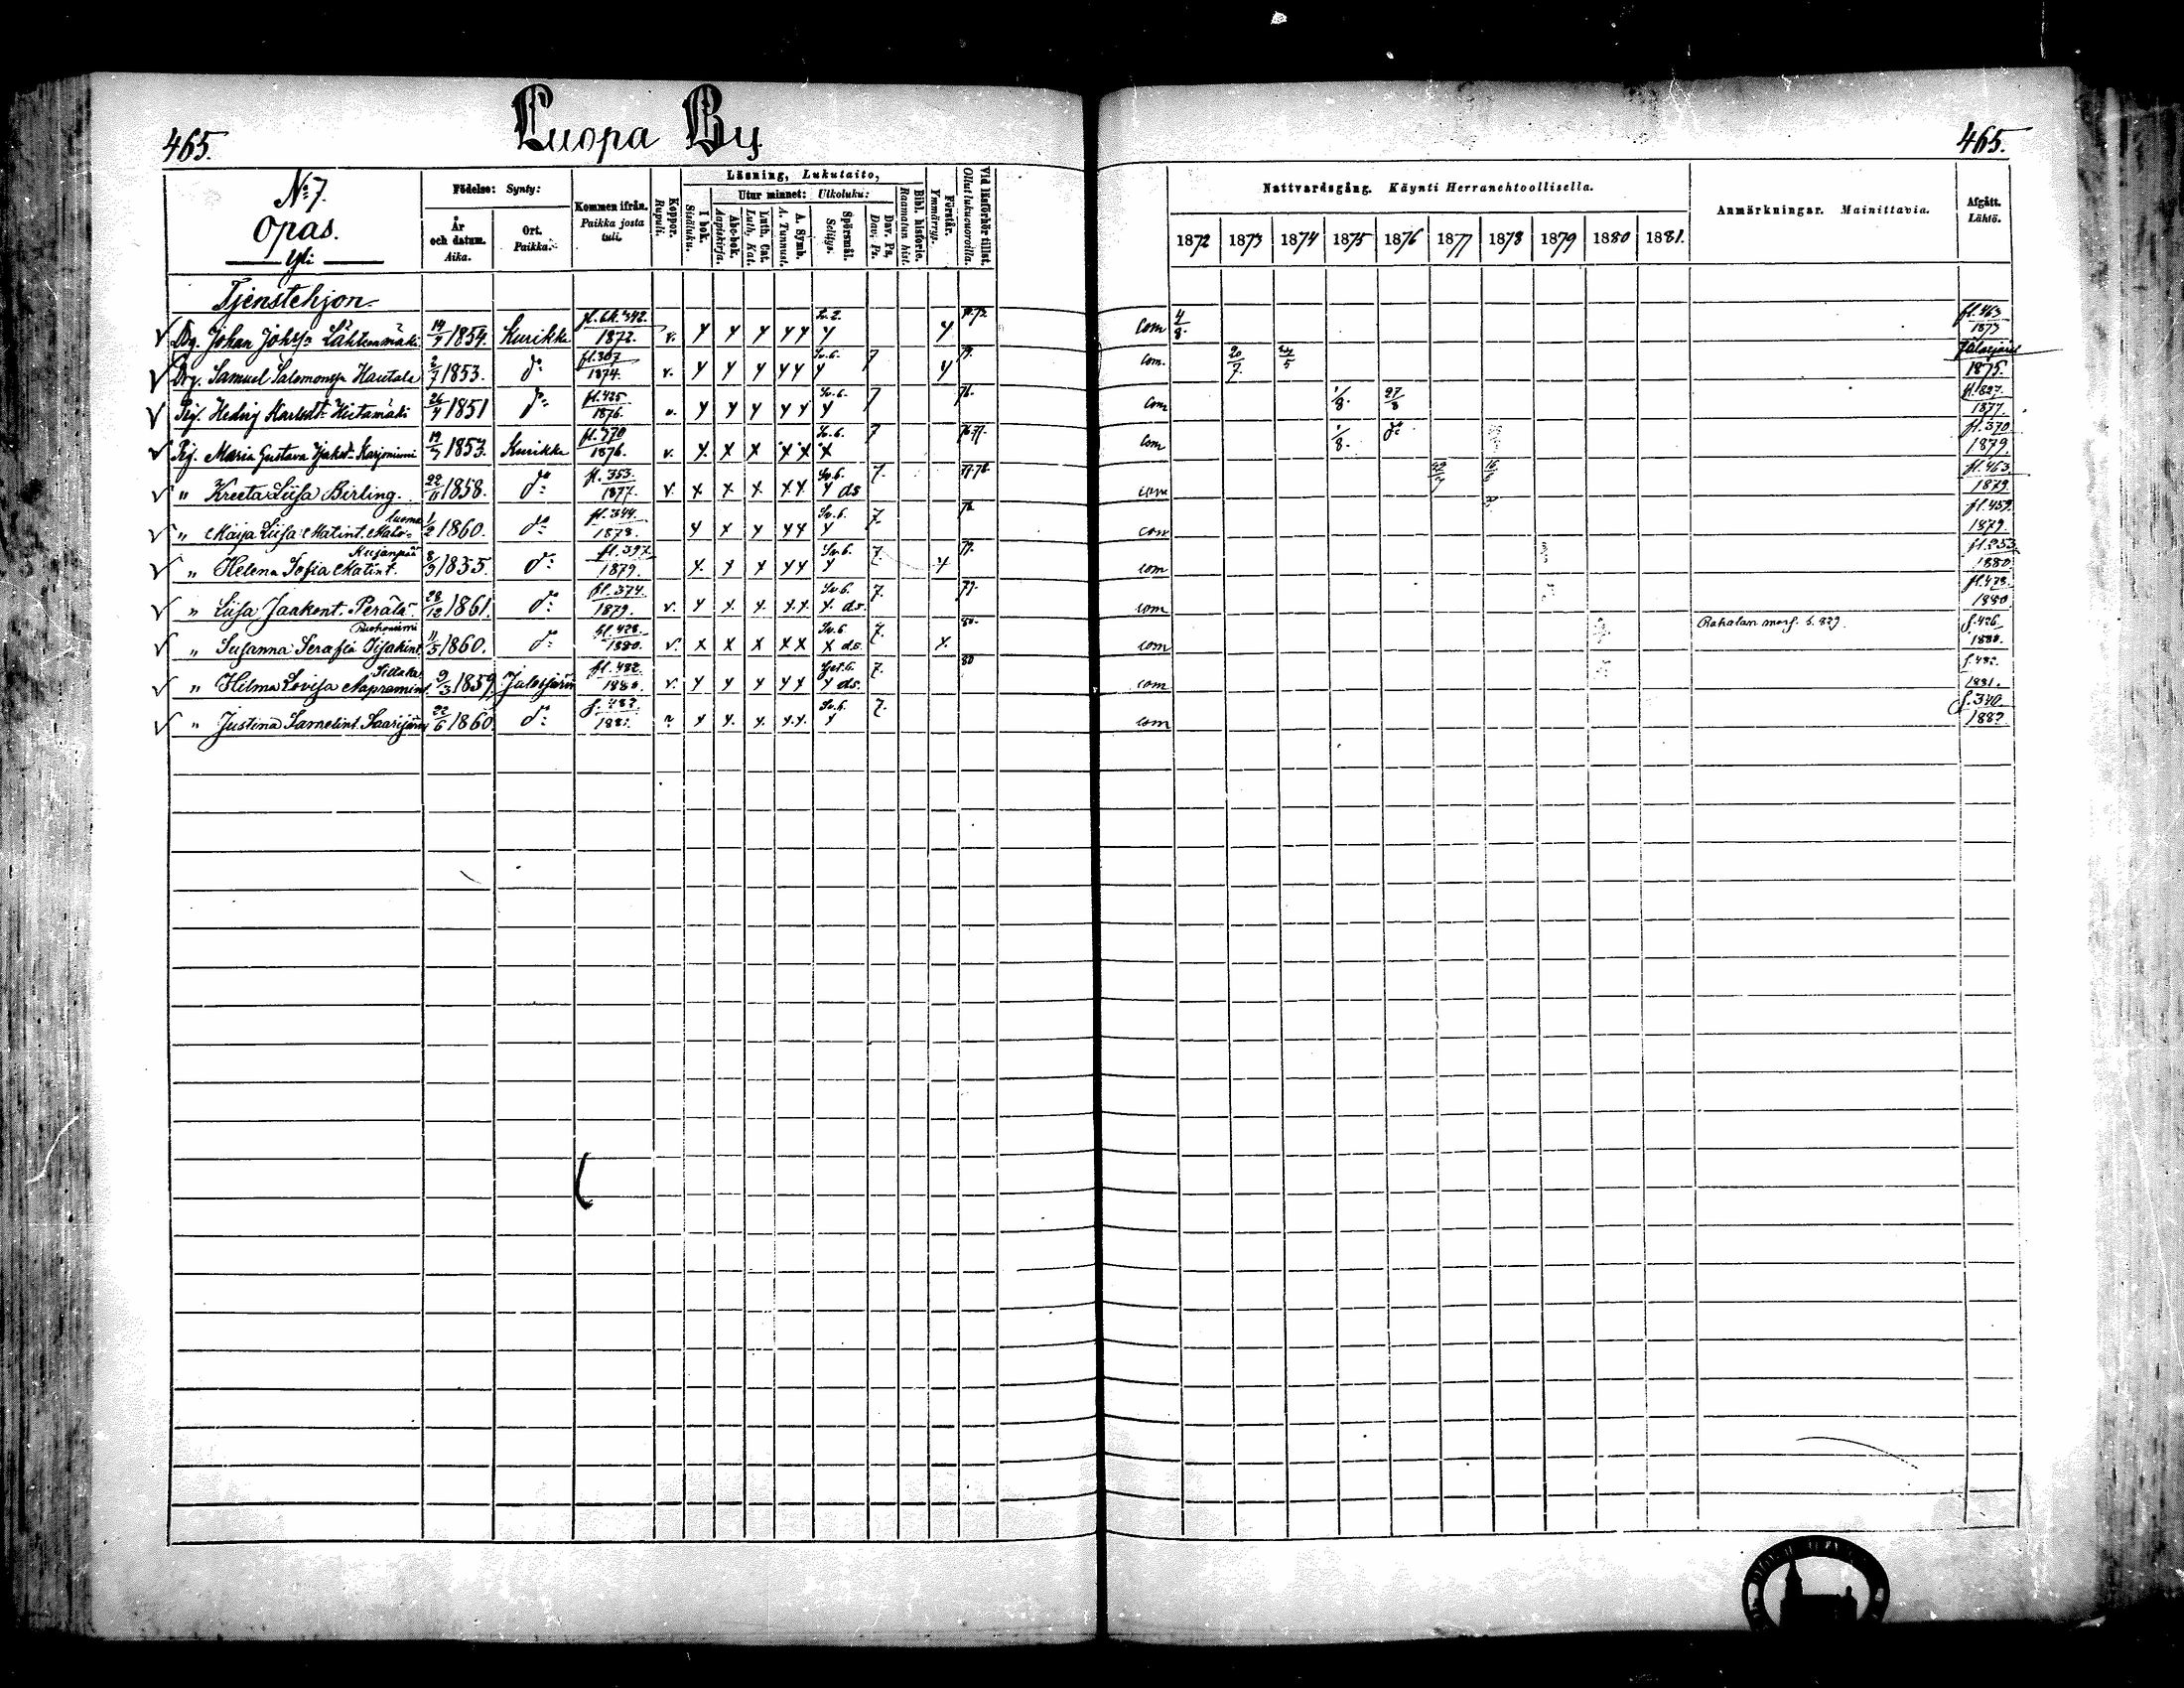 465.
Luopa By
465.
No 7.
Opas.
Yli
Födelse: Synty:
År och datum. Aika.
Ort. Paikka.
Kommen ifrån. Paikka josta tuli.
Koppor. Rupuli.
Läsning, Lukutaito,
I bok. Sisäluku.
Utur minnet: Ulkoluku:
Abc-bok. Aapiskirja.
Luth. Cat. Luth. Kat.
A. Symb. A. Tunnust.
Spörsmål. Selitys.
Dav. Ps. Dav. Ps.
Bibl. historie. Raamatun hist.
Förstår. Ymmärrys.
Vid läsförhör tillst. Ollut lukuvuoroilla.
Nattvardsgång. Käynti Herranehtoollisella.
1872 1873 1874 1875 1876 1877 1878 1879 1880 1881.
Anmärkningar. Mainittavia.
Afgått. Lähtö.
Tjenstehjon.
Drg. Johan Johss. Lähteenmäki 14/7 1854. Kurikka fl. 342. 1872. v. Sv. 2. Com 4/8. fl. 463 1873
Drg. Samuel Salomonss. Hautala 2/7 1853. do fl. 307 1874. v. Sv. 6. 7 Com. 20/7. Jalasjärvi 1875
Pig. Hedvig Karlsdr. Hietamäki 26/4 1851 do fl. 425 1876. v. Sv. 6. 7 76. Com 1/8. 27/8 1877.
Pig. Maria Gustava Karjaniemi 19/7 1853. Kurikka fl. 370 1876. v. Sv. 6. 7 76.77. Com 1/8. fl. 370 1879.
" Kreeta Liisa Birling. 22/11 1858. do fl. 353. 1877. v. Sv. 6. ds 7. 77.78. com fl. 463 1879.
" Maija Liisa Matint. Maho-luoma 1/2 1860. do fl. 344. 1878. Sv. 6. 7. 78. com fl. 459. 1879.
" Helena Sofia Matint. Kujanpää 8/9 1835. do fl. 397. 1879. Sv. 6. 7. 79. com fl. 353 1880
" Liisa Jaakont. Perälä 28/12 1861. do fl. 374. 1879. v. Sv. 6. ds. 7. 79. com fl. 478. 1880
" Susanna Serafia Isakint. 11/5 1860. do fl. 428. 1880. v. Sv. 6. ds. 7. 80. com f. 426 1880.
" Hilma Lovisa 9/3 1859. Jalasjärvi fl. 482. 1880. v. ds. 7. 80 com 1881.
" Justina Samelint. Saarijärvi 22/6 1860. do Sv. 6. 7. com f. 340. 1882